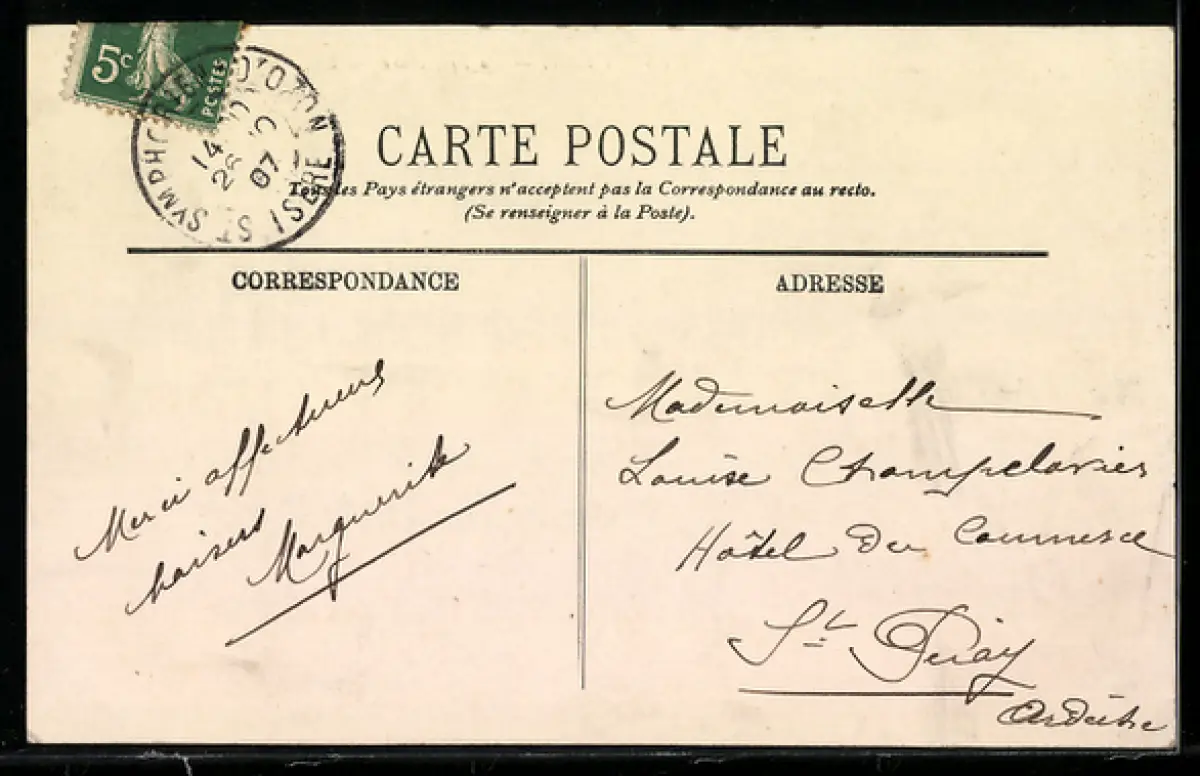 5c
POSTES
ST SYMPHORIEN D'OZON
14
07
ISÈRE
CARTE POSTALE
Tous les Pays étrangers n'acceptent pas la Correspondance au recto.
(Se renseigner à la Poste).
CORRESPONDANCE
ADRESSE
Merci affectueux
baisers
Marguerite
Mademoiselle
Louise Champelovier
Hôtel du Commerce
St Péray
Ardèche